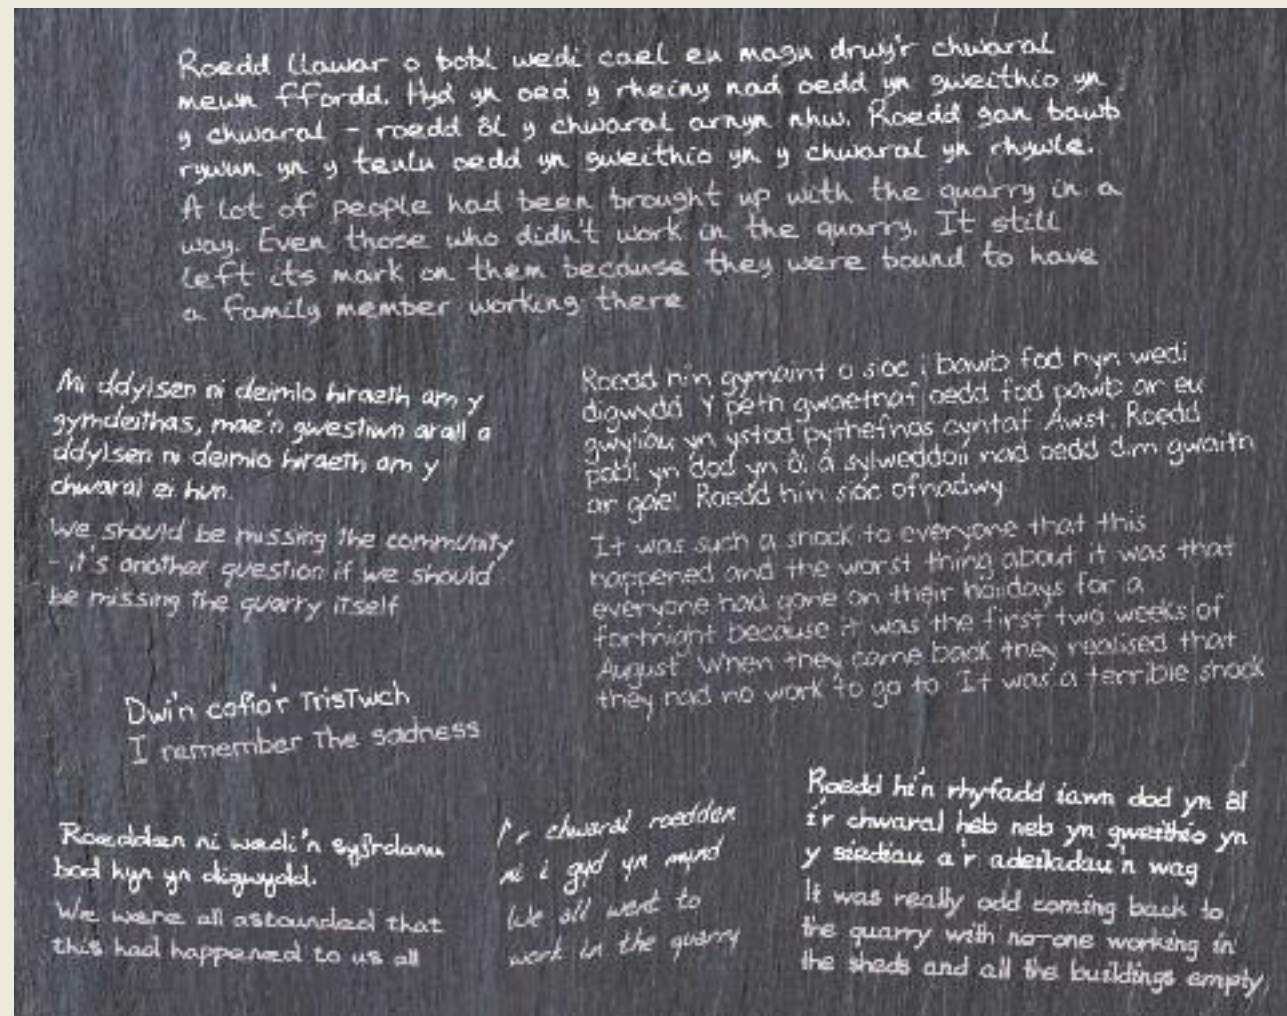 Roedd llawar o bobl wedi cael eu magu drwy'r chwaral
mewn ffordd. Hyd yn oed y rheiny nad oedd yn gweithio yn
y chwaral - roedd ôl y chwaral arnyn nhw. Roedd gan bawb
rywun yn y teulu oedd yn gweithio yn y chwaral yn rhywle.
A lot of people had been brought up with the quarry in a
way. Even those who didn't work in the quarry. It still
left its mark on them because they were bound to have
a family member working there
Mi ddylsen ni deimlo hiraeth am y
gymdeithas, mae'n gwestiwn arall a
ddylsen ni deimlo hiraeth am y
chwaral ei hun.
We should be missing the community
- it's another question if we should
be missing the quarry itself
Roedd hi'n gymaint o sioc i bawb fod hyn wedi
digwydd. Y peth gwaethaf oedd fod pawb ar eu
gwyliau yn ystod pythefnos cyntaf Awst. Roedd
pobl yn dod yn ôl a sylweddoli nad oedd dim gwaith
ar gael. Roedd hi'n sioc ofnadwy
It was such a shock to everyone that this
happened and the worst thing about it was that
everyone had gone on their holidays for a
fortnight because it was the first two weeks of
August. When they came back they realised that
they had no work to go to. It was a terrible shock
Dwi'n cofio'r Tristwch
I remember The sadness
Roedden ni wedi'n syfrdanu
bod hyn yn digwydd.
We were all astounded that
this had happened to us all
I'r chwaral roedden
ni i gyd yn mynd
We all went to
work in the quarry
Roedd hi'n rhyfadd iawn dod yn ôl
i'r chwaral heb neb yn gweithio yn
y siediau a'r adeiladau'n wag
It was really odd coming back to
the quarry with no-one working in
the sheds and all the buildings empty